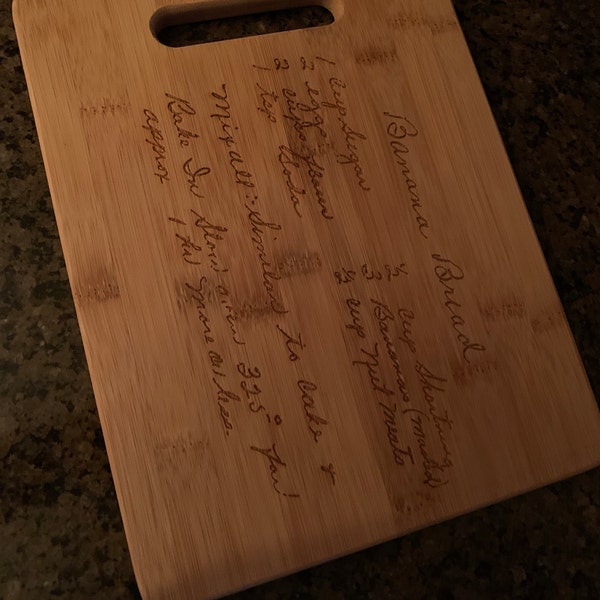 Banana Bread
1 cup sugar ½ cup Shortening
2 eggs 3 Bananas (mashed)
2 cups flour ½ cup Nut meats
1 tsp Soda
Mix all - Similar to cake &
Bake In Slow oven 325° for
approx 1 hr more or less.